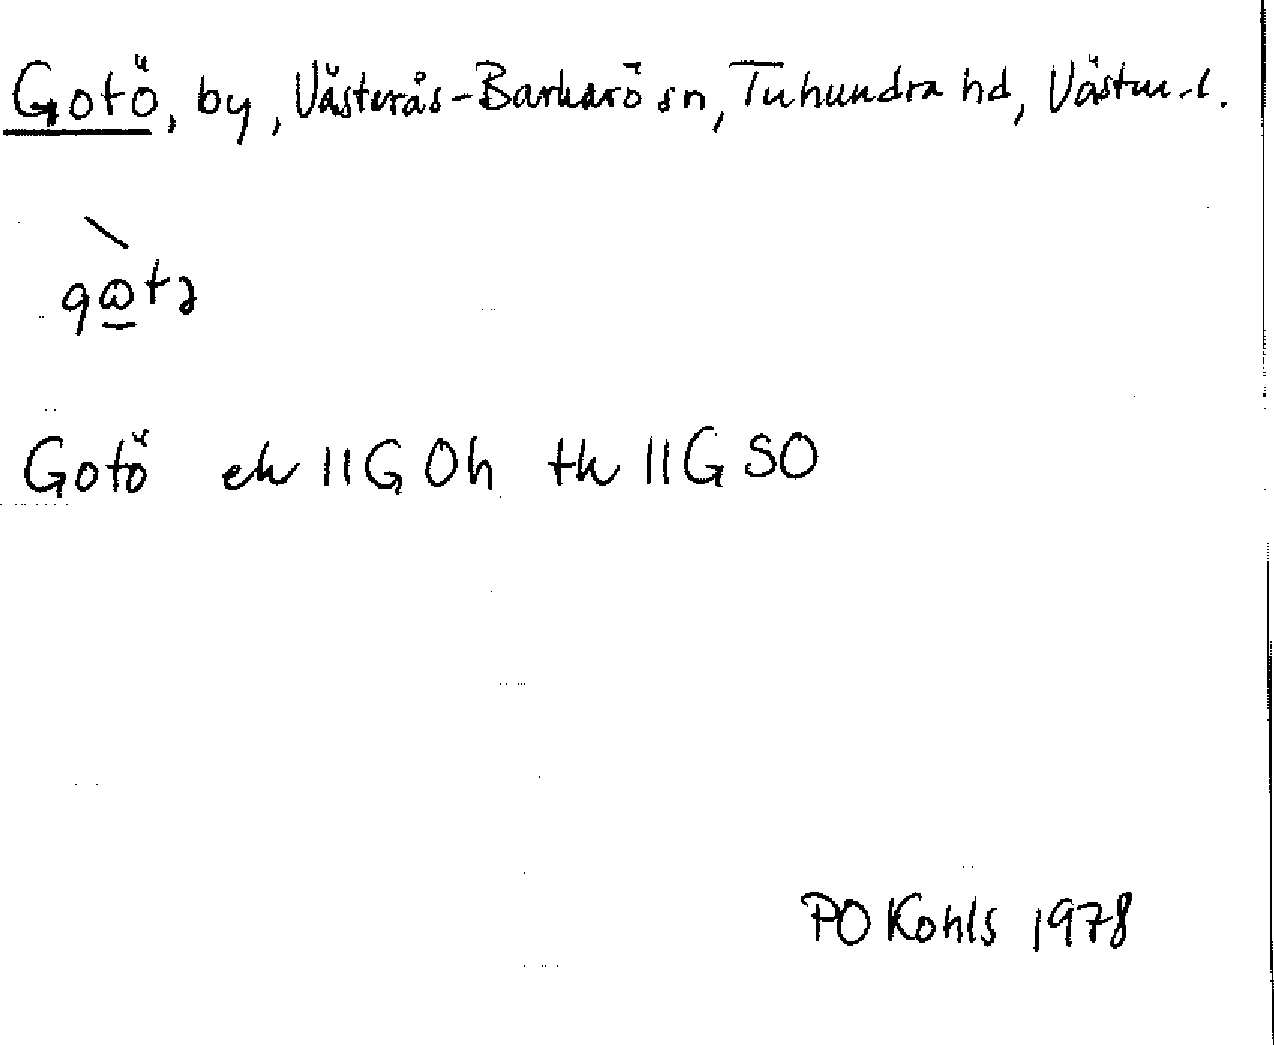 Gotö, by, Västerås-Barkarö sn, Tuhundra hd, Västm.l.
Gotö ek 11G Oh tk 11G SO
PO Kohls 1978